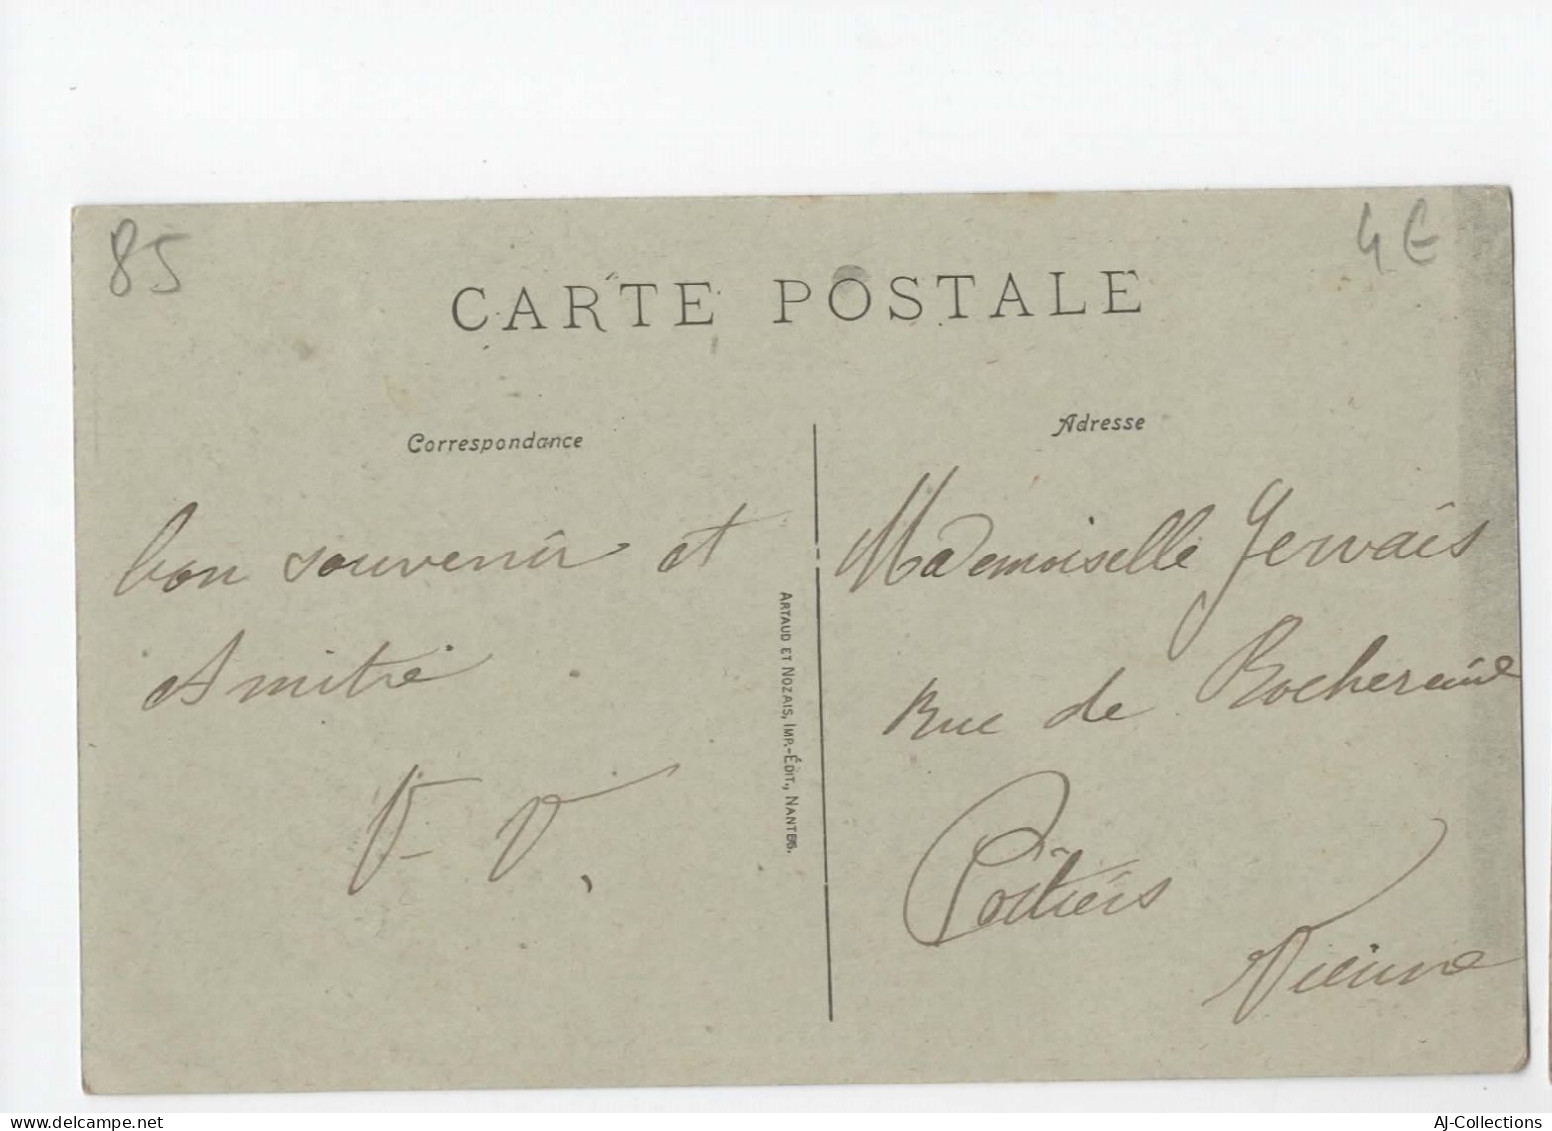 85
4 €
CARTE POSTALE
Correspondance
Adresse
bon souvenir et
Amitié
V- V.
ARTAUD ET NOZAIS, IMP.-ÉDIT., NANTES.
Mademoiselle Gervais
Rue de Rochereuil
Poitiers
Vienne
AJ-Collections